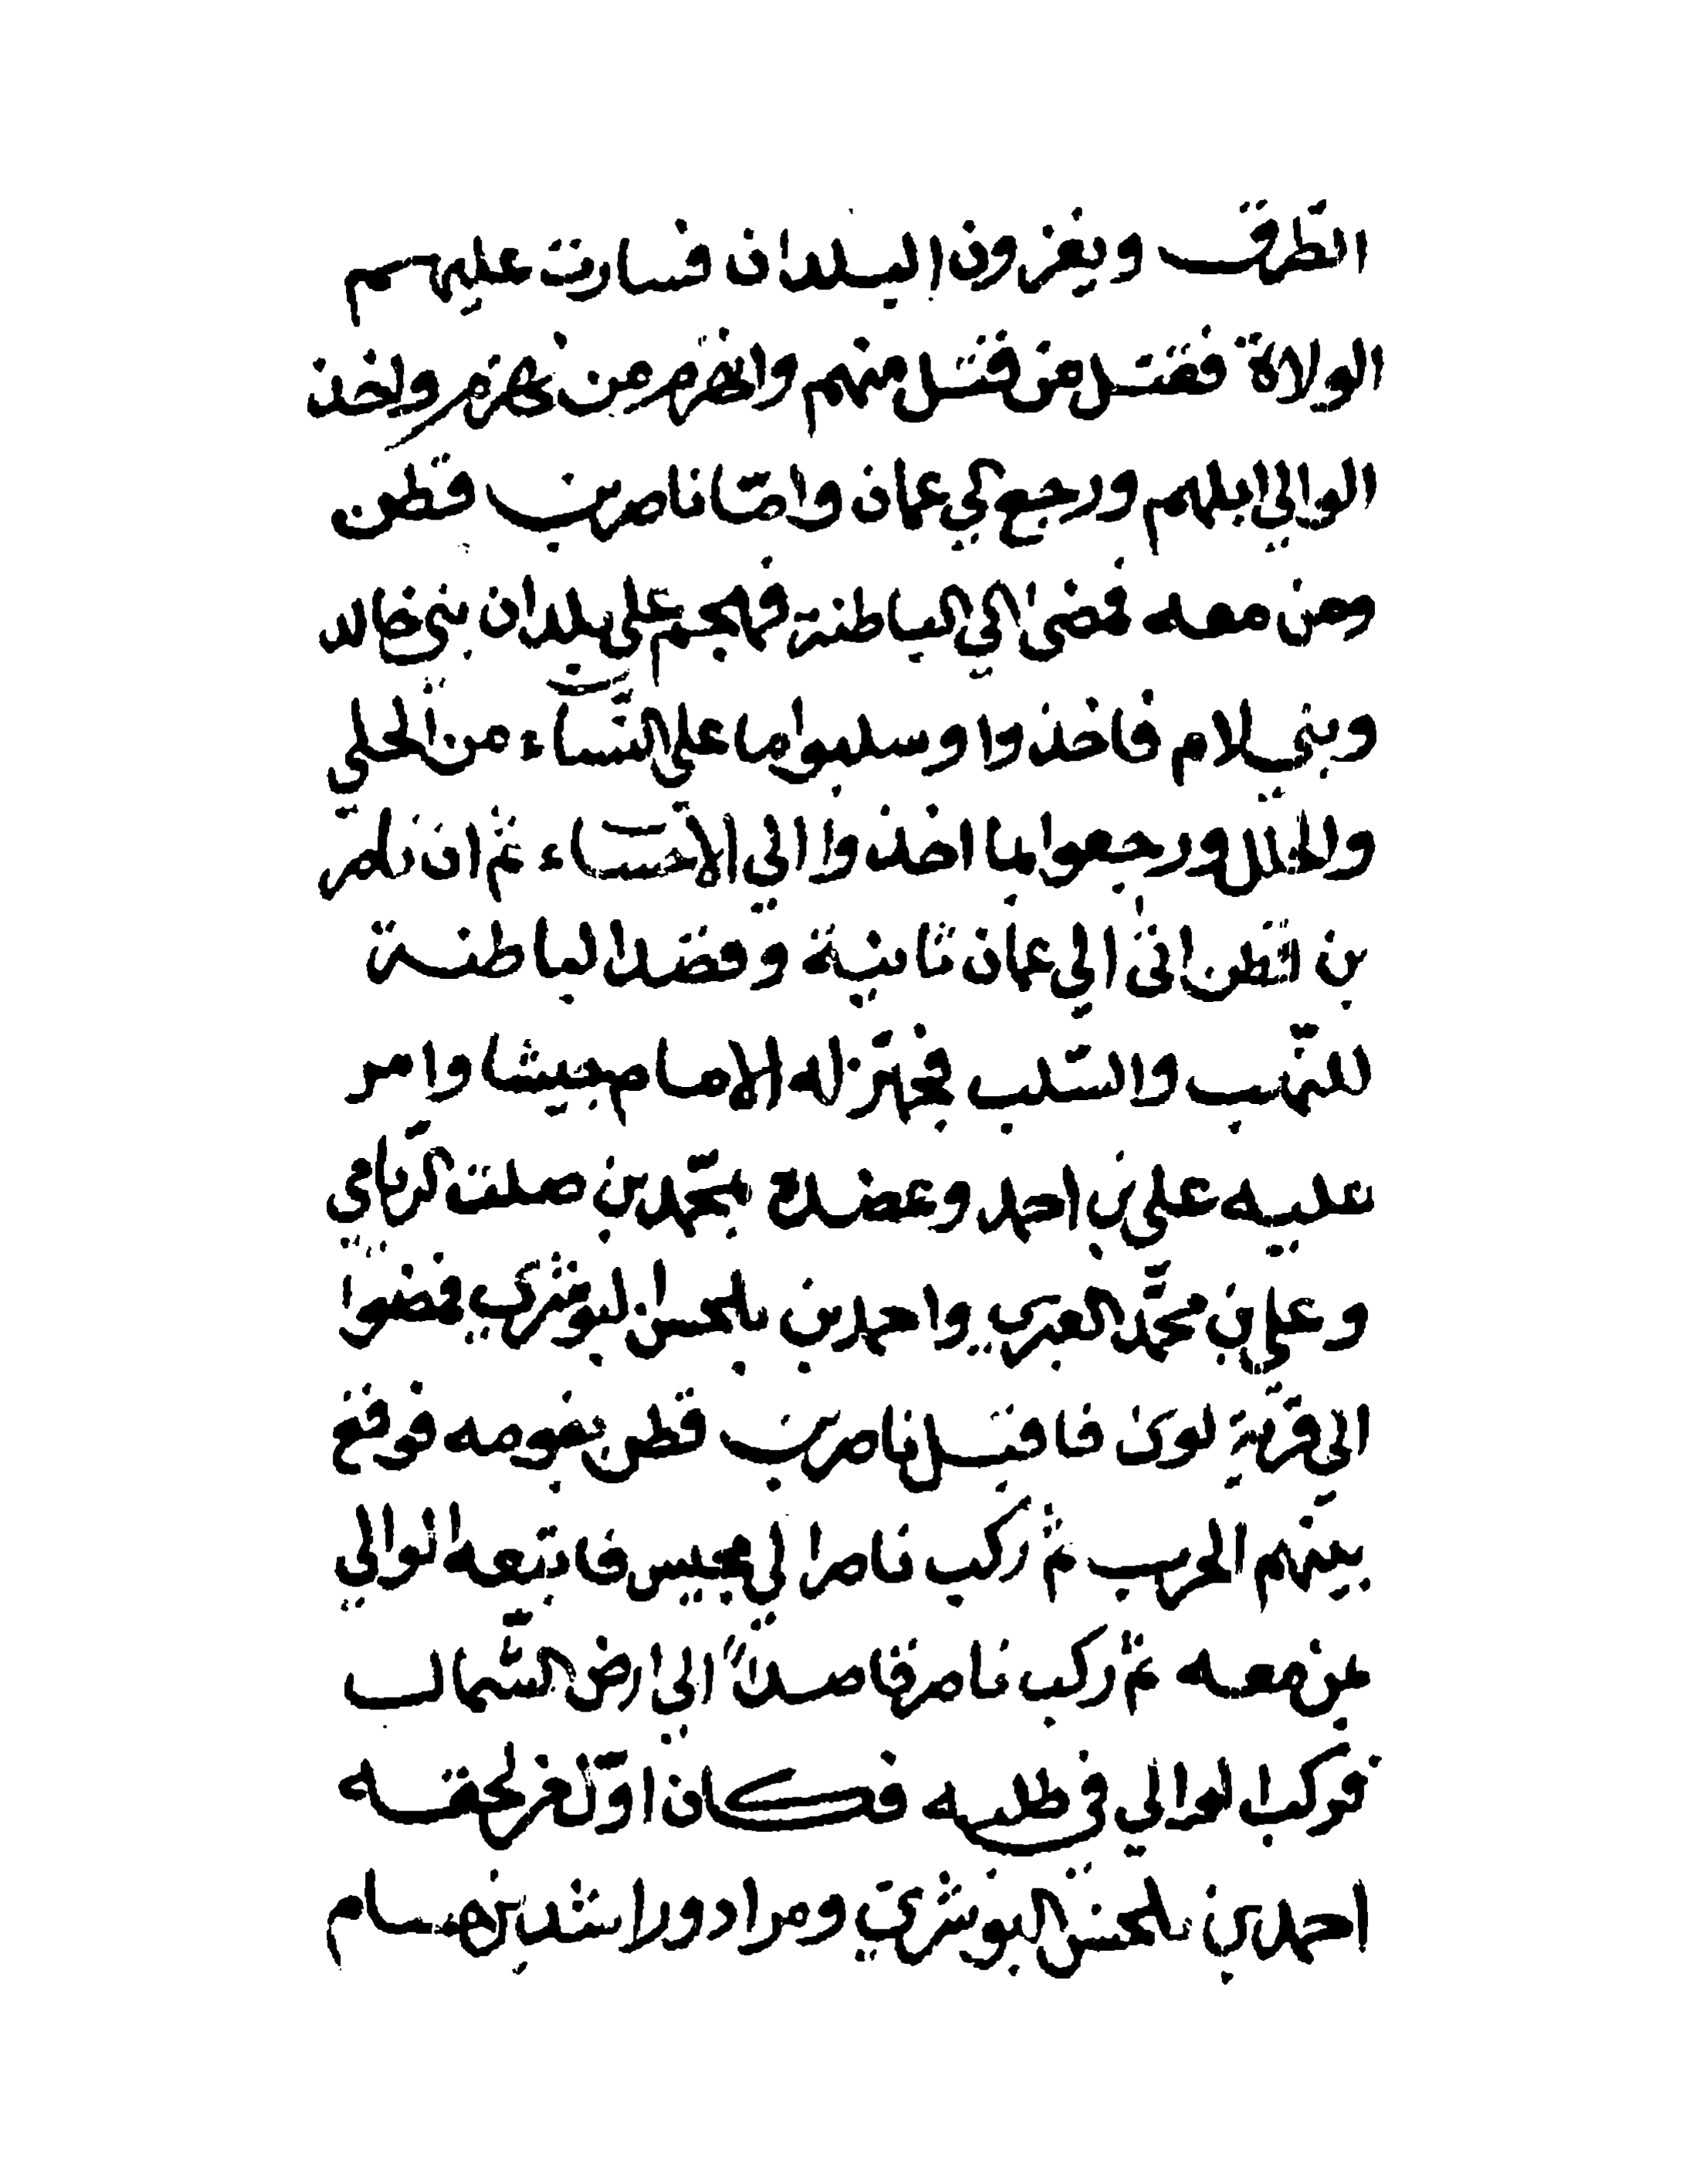 الطّرق ويغزون البلدان فسارت عليهم
الولاة فقتل من قتل منهم وانهزم من انهزم واخذ
الوالي ابلهم ورجع الي عمان وامّا ناصر بن قطن
ومن معه فمضى الي الباطنة فهجم علي بلدان بني خالد
وبني لام فاخذوا وسلبوا ما علي النّساء من الحلي
والحلل ورجعوا بما اخذوا الي الاحساء ثم ان ناصر
بن قطن اتى الي عمان ثانية وقصد الباطنة
للنّهب والسّلب فجهّز له الامام جيشا وامر
عليه علي بن احمد وعضده بمحّمد بن صلت الرّيامي
وعلي بن محمّد العبري واحمد بن بلحسن البوشري فمضوا
الي قرية لوى فاقبل ناصر بن قطن بقومه فوقع
بينهم الحرب ثم ركب ناصر الي مجيس فاتبعه الوالي
بمن معه ثم ركب ناصر قاصداً الي ارض الشّمال
فركب الوالي في طلبه فكان اوّل من لحقه
احمد بن بلحسن البوشري ومراد وراشد بن حسام